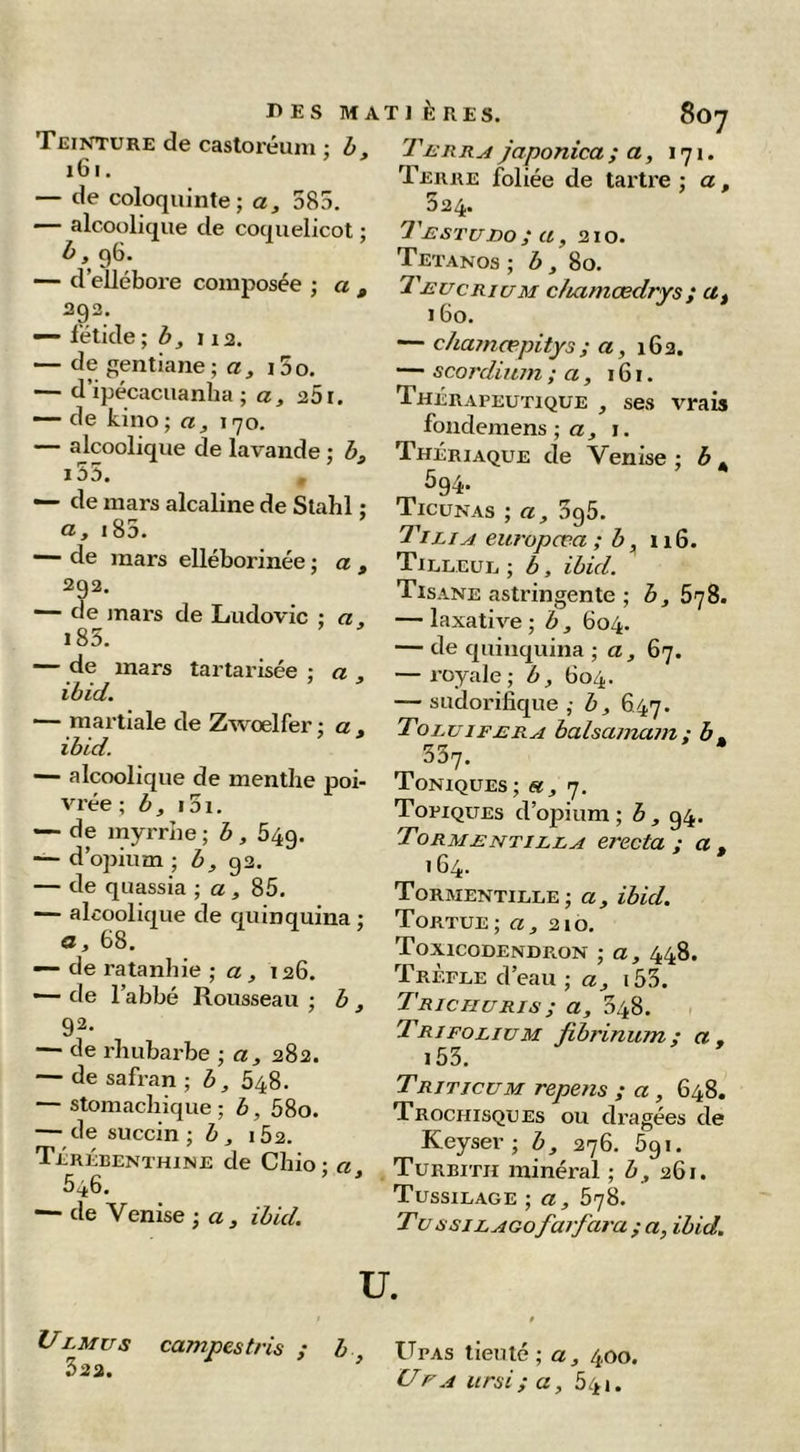 DES MATIÈRES. 807
TEINTURE de castoréum ; b,
161.
— de coloquinte ; a, 385.
— alcoolique de coquelicot ;
b, 96.
— d'ellébore composée ; a,
292.
— fétide ; b, 112.
— de gentiane ; a, 130.
— d'ipécacuanha ; a, 251.
— de kino ; a, 170.
— alcoolique de lavande ; b,
133.
— de mars alcaline de Stahl ;
a, 183.
— de mars elléborinée ; a,
292.
— de mars de Ludovic ; a,
183.
— de mars tartarisée ; a,
ibid.
— martiale de Zwœlfer ; a,
ibid.
— alcoolique de menthe poi-
vrée ; b, 131.
— de myrrhe ; b, 549.
— d'opium ; b, 92.
— de quassia ; a, 85.
— alcoolique de quinquina ;
a, 68.
— de ratanhie ; a, 126.
— de l'abbé Rousseau ; b,
92.
— de rhubarbe ; a, 282.
— de safran ; b, 548.
— stomachique ; b, 580.
— de succin ; b, 152.
TÉRÉBENTHINE de Chio ; a,
546.
— de Venise ; a, ibid.
TERRA japonica ; a, 171.
TERRE foliée de tartre ; a,
324.
TESTUDO ; a, 210.
TETANOS ; b, 80.
TEUCRIUM chamœdrys ; a,
160.
— chamœpitys ; a, 162.
— scordium ; a, 161.
THÉRAPEUTIQUE , ses vrais
fondemens ; a, 1.
THÉRIAQUE de Venise ; b,
594.
TICUNAS ; a, 395.
TILIA europœa ; b, 116.
TILLEUL ; b, ibid.
TISANE astringente ; b, 578.
— laxative ; b, 604.
— de quinquina ; a, 67.
— royale ; b, 604.
— sudorifique ; b, 647.
TOLUIFERA balsamam ; b,
337.
TONIQUES ; a, 7.
TOPIQUES d'opium ; b, 94.
TORMENTILLA erecta ; a,
164.
TORMENTILLE ; a, ibid.
TORTUE ; a, 210.
TOXICODENDRON ; a, 448.
TRÈFLE d'eau ; a, 153.
TRICHURIS ; a, 348.
TRIFOLIUM fibrinum ; a,
153.
TRITICUM repens ; a, 648.
TROCHISQUES ou dragées de
Keyser ; b, 276. 591.
TURBITH minéral ; b, 261.
TUSSILAGE ; a, 578.
TUSSILAGO farfara ; a, ibid.
U.
ULMUS campestris ; b,
322.
UPAS tieuté ; a, 400.
UVA ursi ; a, 541.